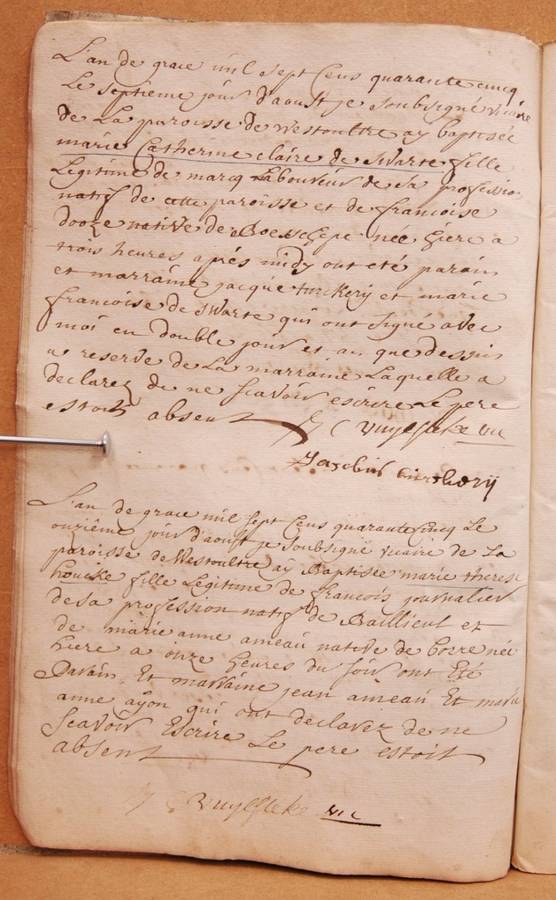 L'an de grace mil sept cens quarante cinq
Le septieme jour d'aoust je soubsigné vicaire
de La paroisse de westoultre ay baptisée
marie Catherine claire de Swarte fille
Legitime de marcq Laboureur de sa profession
natif de cette paroisse et de francoise
dooze native de Boesschepe née hiere a
trois heures aprés midy ont eté parain
et marraine jacque turckery et marie
francoise de swarte qui ont signé avec
moi en double jour et an que dessus
a reserve de La marraine Laquelle a
declarez de ne scavoir escrire Le pere
estoit absent
C vuylsteke vic
Jacobus
L'an de grace mil sept cens quarante cinq Le
onzième jour d'aoust je soubsigné vicaire de La
paroisse de Westoultre ay Baptisée marie therese
houcke fille Legitime de francois journalier
de sa profession natif de Baillieul et
de marie anne ameau native de borre née
hiere a onze heures du soir ont Eté
Parain Et marraine jean ameau Et marie
anne ayon qui ont declarez de ne
scavoir Escrire Le pere estoit
absent
C vuylsteke vic